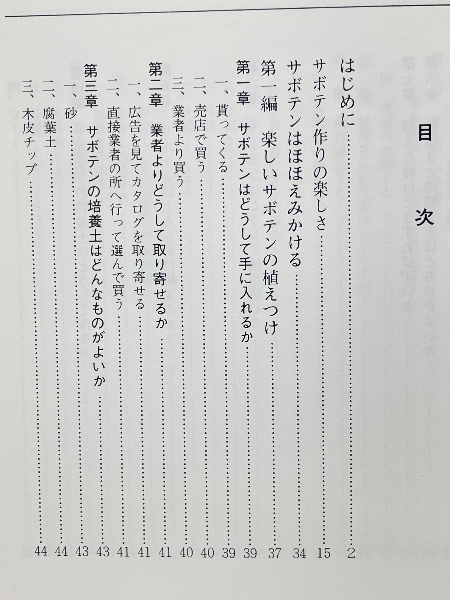 目次
はじめに……………………2
サボテン作りの楽しさ……………………15
サボテンはほほえみかける……………………34
第一編　楽しいサボテンの植えつけ……………………37
第一章　サボテンはどうして手に入れるか……………………39
一、貰ってくる……………………39
二、売店で買う……………………40
三、業者より買う……………………40
第二章　業者よりどうして取り寄せるか……………………41
一、広告を見てカタログを取り寄せる……………………41
二、直接業者の所へ行って選んで買う……………………41
第三章　サボテンの培養土はどんなものがよいか……………………43
一、砂……………………43
二、腐葉土……………………44
三、木皮チップ……………………44